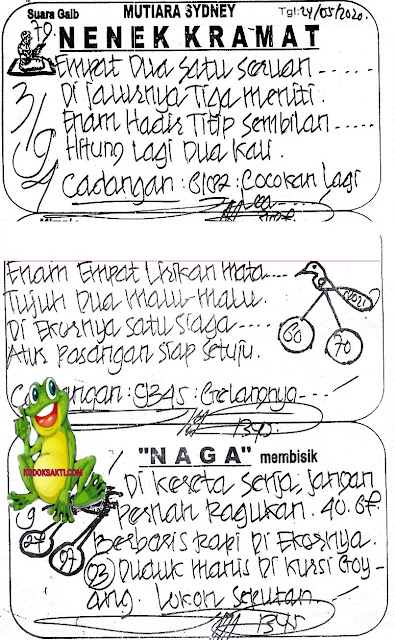 Suara Gaib MUTIARA SYDNEY Tgl: 24/05/2020.
79
NENEK KRAMAT
Empat Dua satu seruan -----
Di jalurnya Tiga meniti.
Enam Hadir Titip sembilan -----
Hitung Lagi Dua kali.
3/9
Cadangan: 8182: Cocokan Lagi
Enam Empat Lirikan mata----
Tujuh Dua malu-malu.
Di Ekornya satu siaga ----
Atur pasangan siap setuju.
60
70
Cadangan: 9345: Gelangnya---
1345.
"NAGA" membisik
Di kereta senja, jangan
Pernah Ragukan. 40. 67.
Berbaris Rapi Di Ekornya.
(23) Duduk manis Di kursi Goy-
ang.
1345
97
KODOKSAKTI.COM